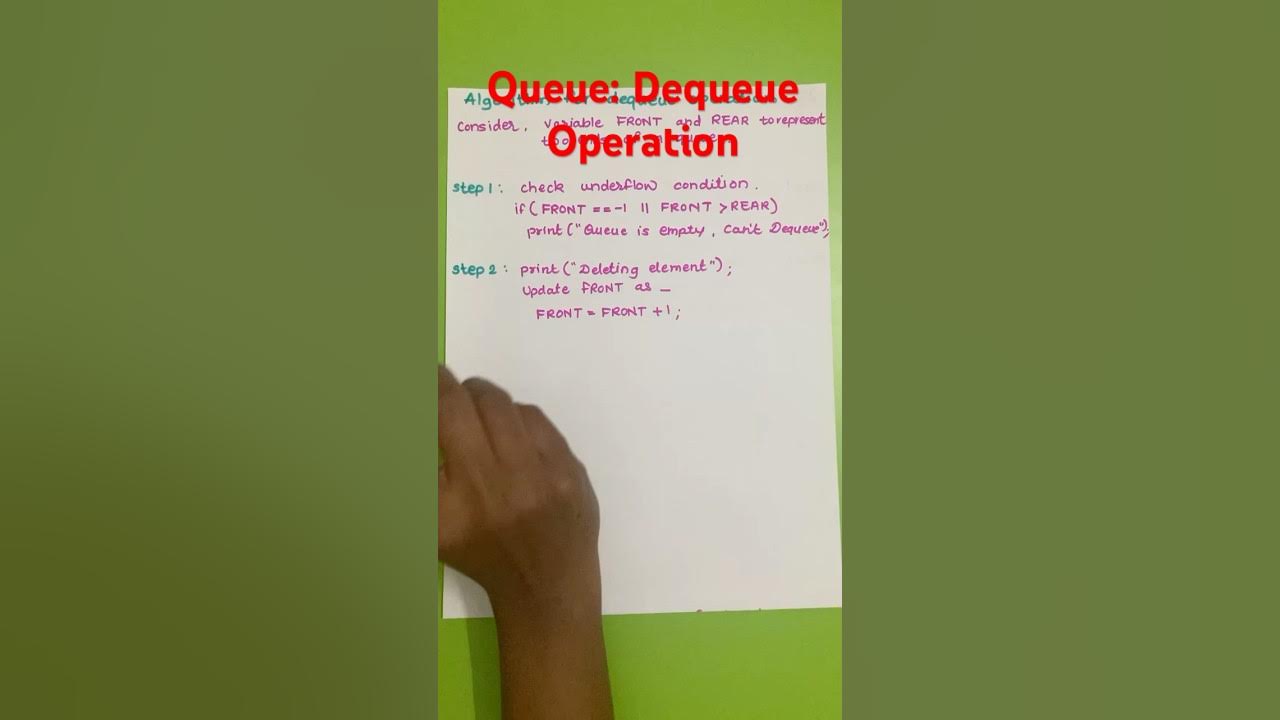 Queue: Dequeue
Operation
Consider, variable FRONT and REAR to represent
step 1: check underflow condition.
if ( FRONT == -1 || FRONT > REAR)
print ("Queue is empty, Can't Dequeue");
step 2: print ("Deleting element");
Update FRONT as _
FRONT = FRONT +1;